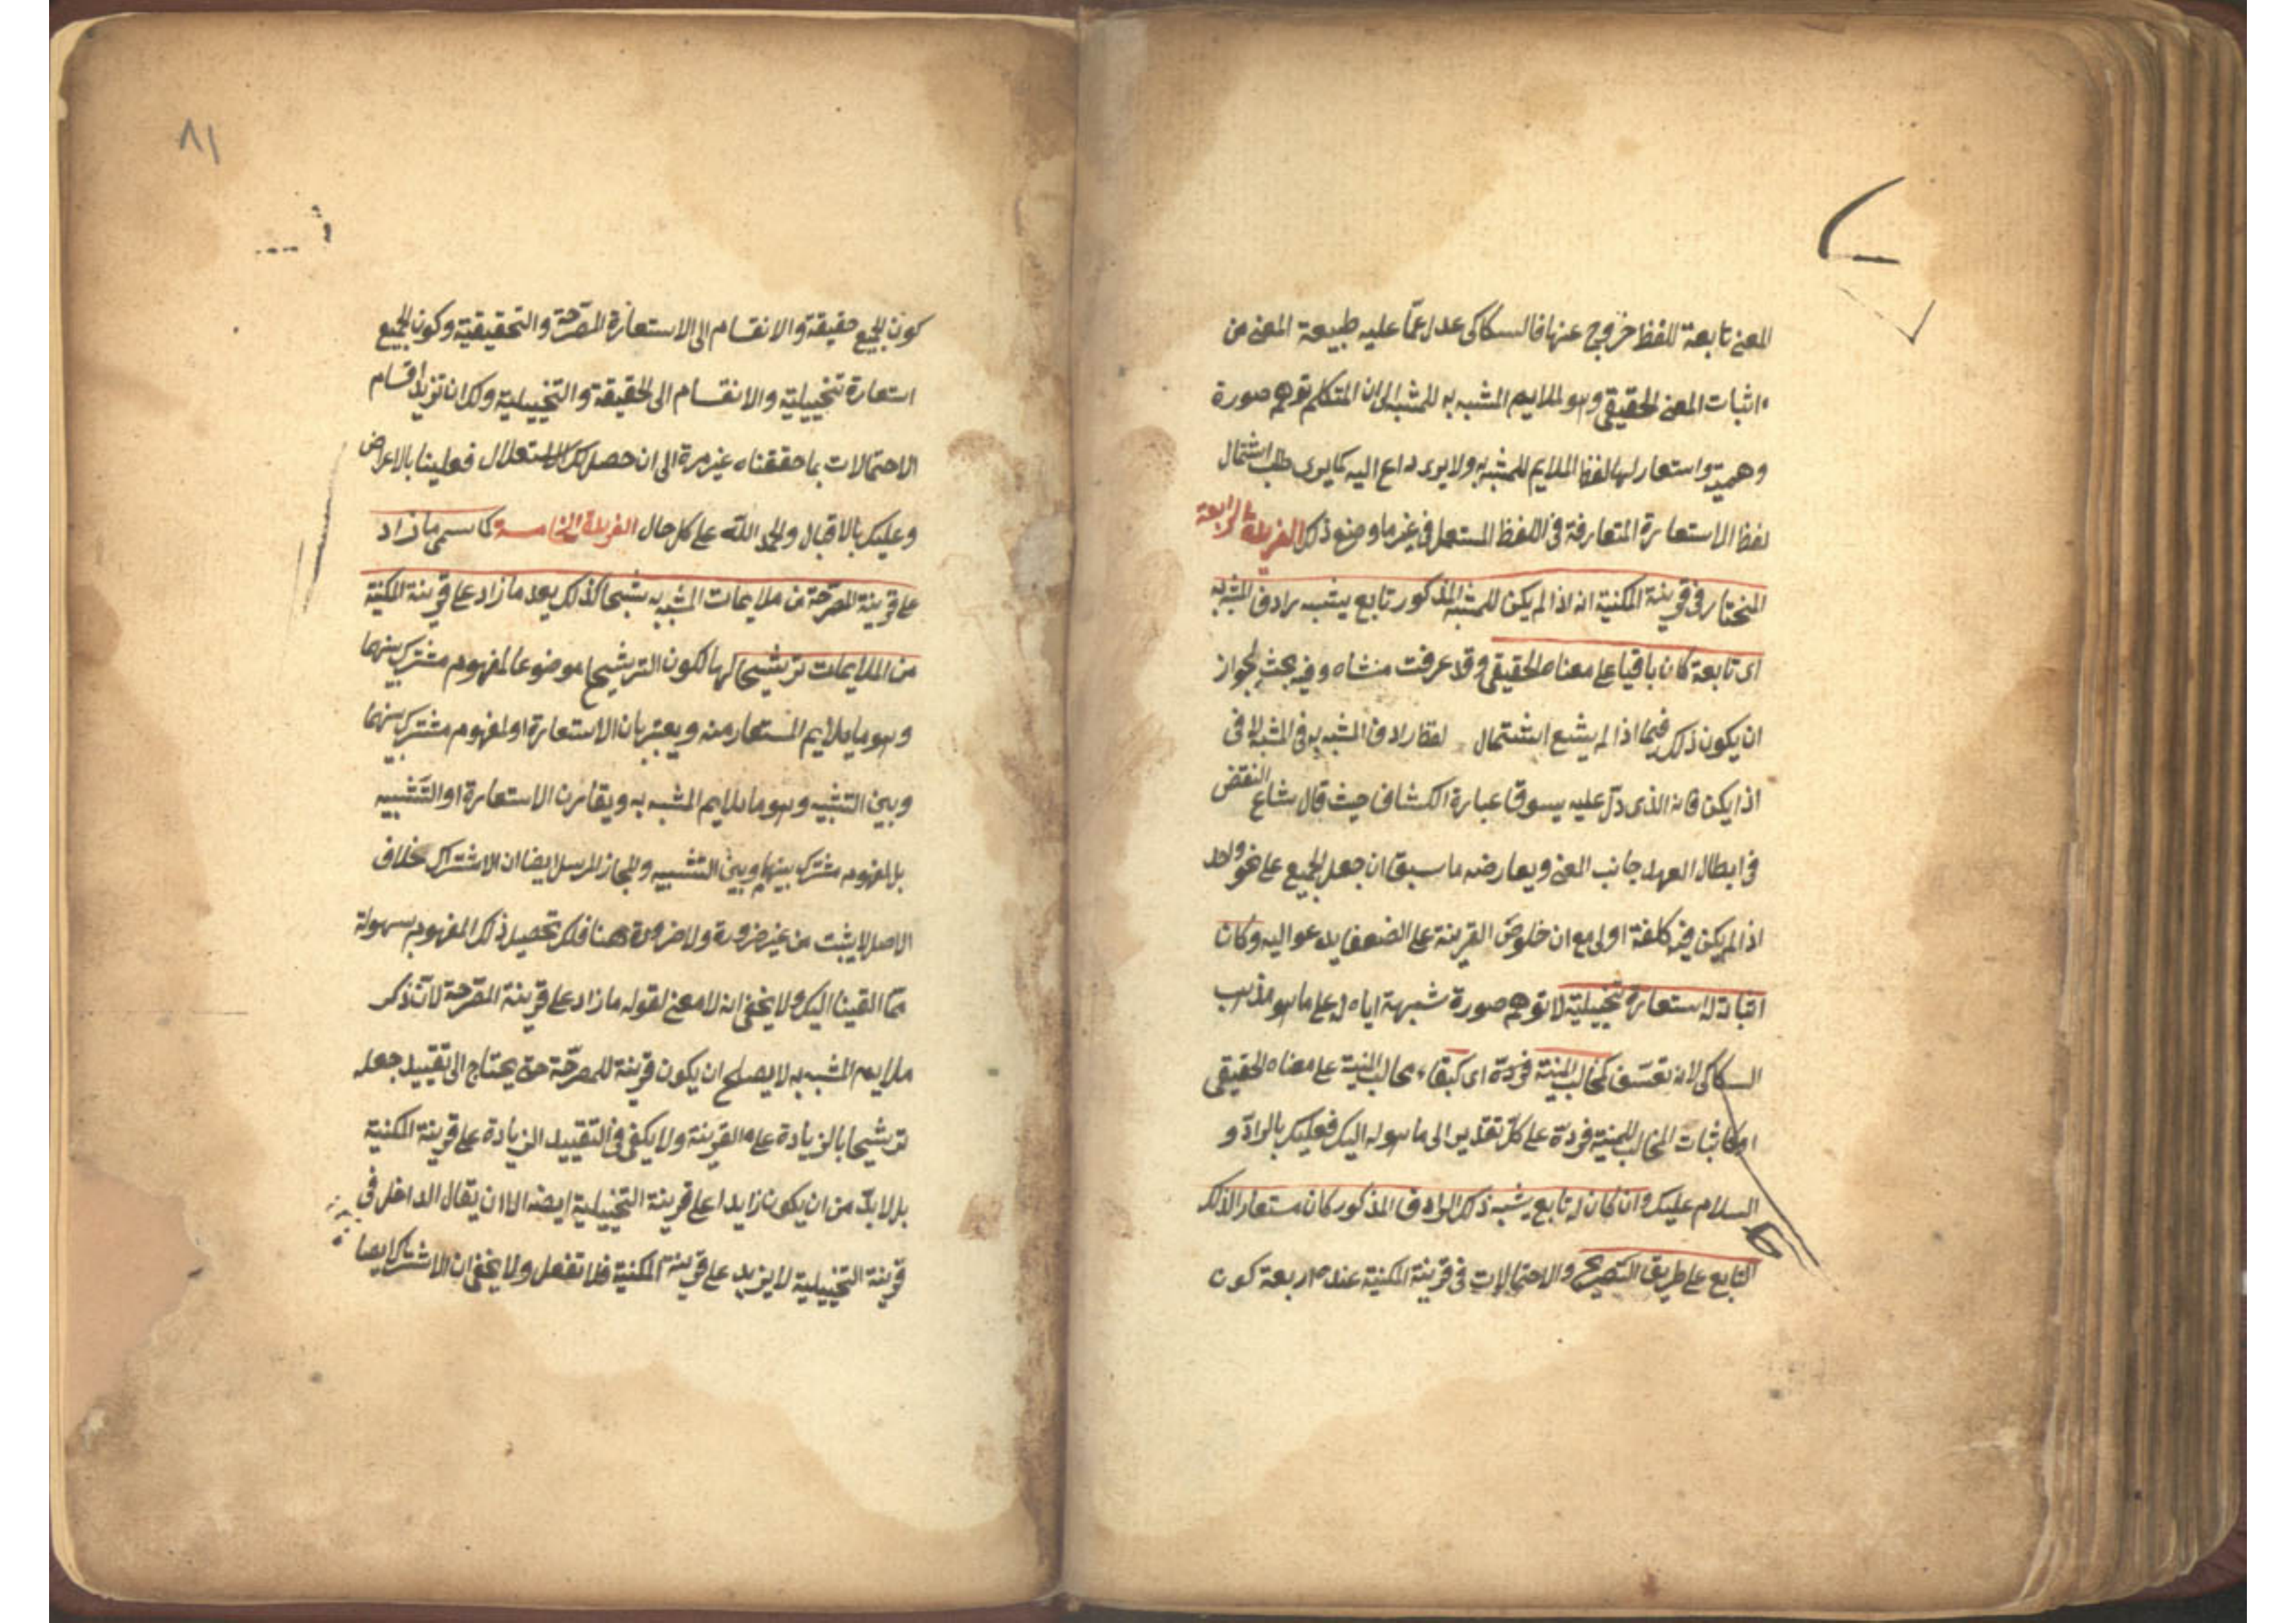 المعنى تابعة للفظ خروج عنها فالسكاكى عدل عما عليه طبيعة المعنى من
اثبات المعنى الحقيقى وهو الملايم المشبه به للمشبه الى ان المتكلم توهم صورة
وهمية واستعار لها لفظ الملايم للمشبه به ولا يرى داع اليه كما يرى طلب اشتمال
لفظ الاستعارة المتعارفة فى اللفظ المستعمل فى غير ما وضع ذلك الفريدة الرابعة
المختار فى قرينة المكنية انه اذا لم يكن للمشبه المذكور تابع يشبه رادف المشبه به
اى تابعة كان باقيا على معناه الحقيقى وقد عرفت منشاه وفيه بحث لجواز
ان يكون ذلك فيما اذا لم يشع اشتمال لفظ رادف المشبه به فى المشبه
اذ ايكن فانه الذى دل عليه يسوق عبارة الكشاف حيث قال شاع النقض
فى ابطال العهد جانب المعنى ويعارضه ما سبق ان جعل الجميع على نحو واحد
اذا لم يكن فيه كلفة اولى مع ان خلوص القرينة على الضعف يدعو اليه وكان
اثباته له استعارة تخييلية لا توهم صورة شبهة اياه له على ما هو مذهب
السكاكى لانه تعسف كمخالب المنية فردة اى كبقاء مخالب المنية على معناه الحقيقى
او كاثبات المخالب للمنية فردة على كل تقدير الى ما هو له اليك فعليك بالراد و
السلام عليك وان كان له تابع يشبه ذلك الرادف المذكور كان مستعارا لذلك
التابع على طريق التصريح والاحتمالات فى قرينة المكنية عنده اربعة كون
٨١
كون الجميع حقيقة والانقسام الى الاستعارة المصرحة والتحقيقية وكون الجميع
استعارة تخييلية والانقسام الى الحقيقة والتخييلية ولك ان تزيد اقسام
الاحتمالات بما حققناه غير مرة الى ان حصل لك الاستعلال فعلينا بالاعراض
وعليك بالاقبال والحمد لله على كل حال الفريدة الخامسة كما سمى ما زاد
على قرينة المصرحة من ملايمات المشبه به ترشيحا كذلك يعد ما زاد على قرينة المكنية
من الملايمات ترشيحا لها لكون الترشيح موضوعا لمفهوم مشترك بينهما
وهو ما يلايم المستعار منه ويعتبر بان الاستعارة او لمفهوم مشترك بينهما
وبين التشبيه وهو ما يلايم المشبه به ويقارن الاستعارة او التشبيه
بل لمفهوم مشترك بينهما وبين التشبيه والمجاز المرسل ايضا ان الاشتراك خلاف
الاصل لا يثبت من غير ضرورة ولا ضرورة هنا فلك تحصيل ذلك المفهوم بسهولة
مما القينا اليك ولا يخفى انه لا معنى لقوله ما زاد على قرينة المصرحة لان ذكر
ملايم المشبه به لا يصلح ان يكون قرينة للمصرحة حتى يحتاج الى تقييد جعله
ترشيحا بالزيادة على القرينة ولا يكفى فى التقييد الزيادة على قرينة المكنية
بل لا بد من ان يكون زايدا على قرينة التخييلية ايضه الا ان يقال الداخل فى
قرينة التخييلية لا يزيد على قرينة المكنية فلا تغفل ولا يخفى ان الاشتراك ايضا